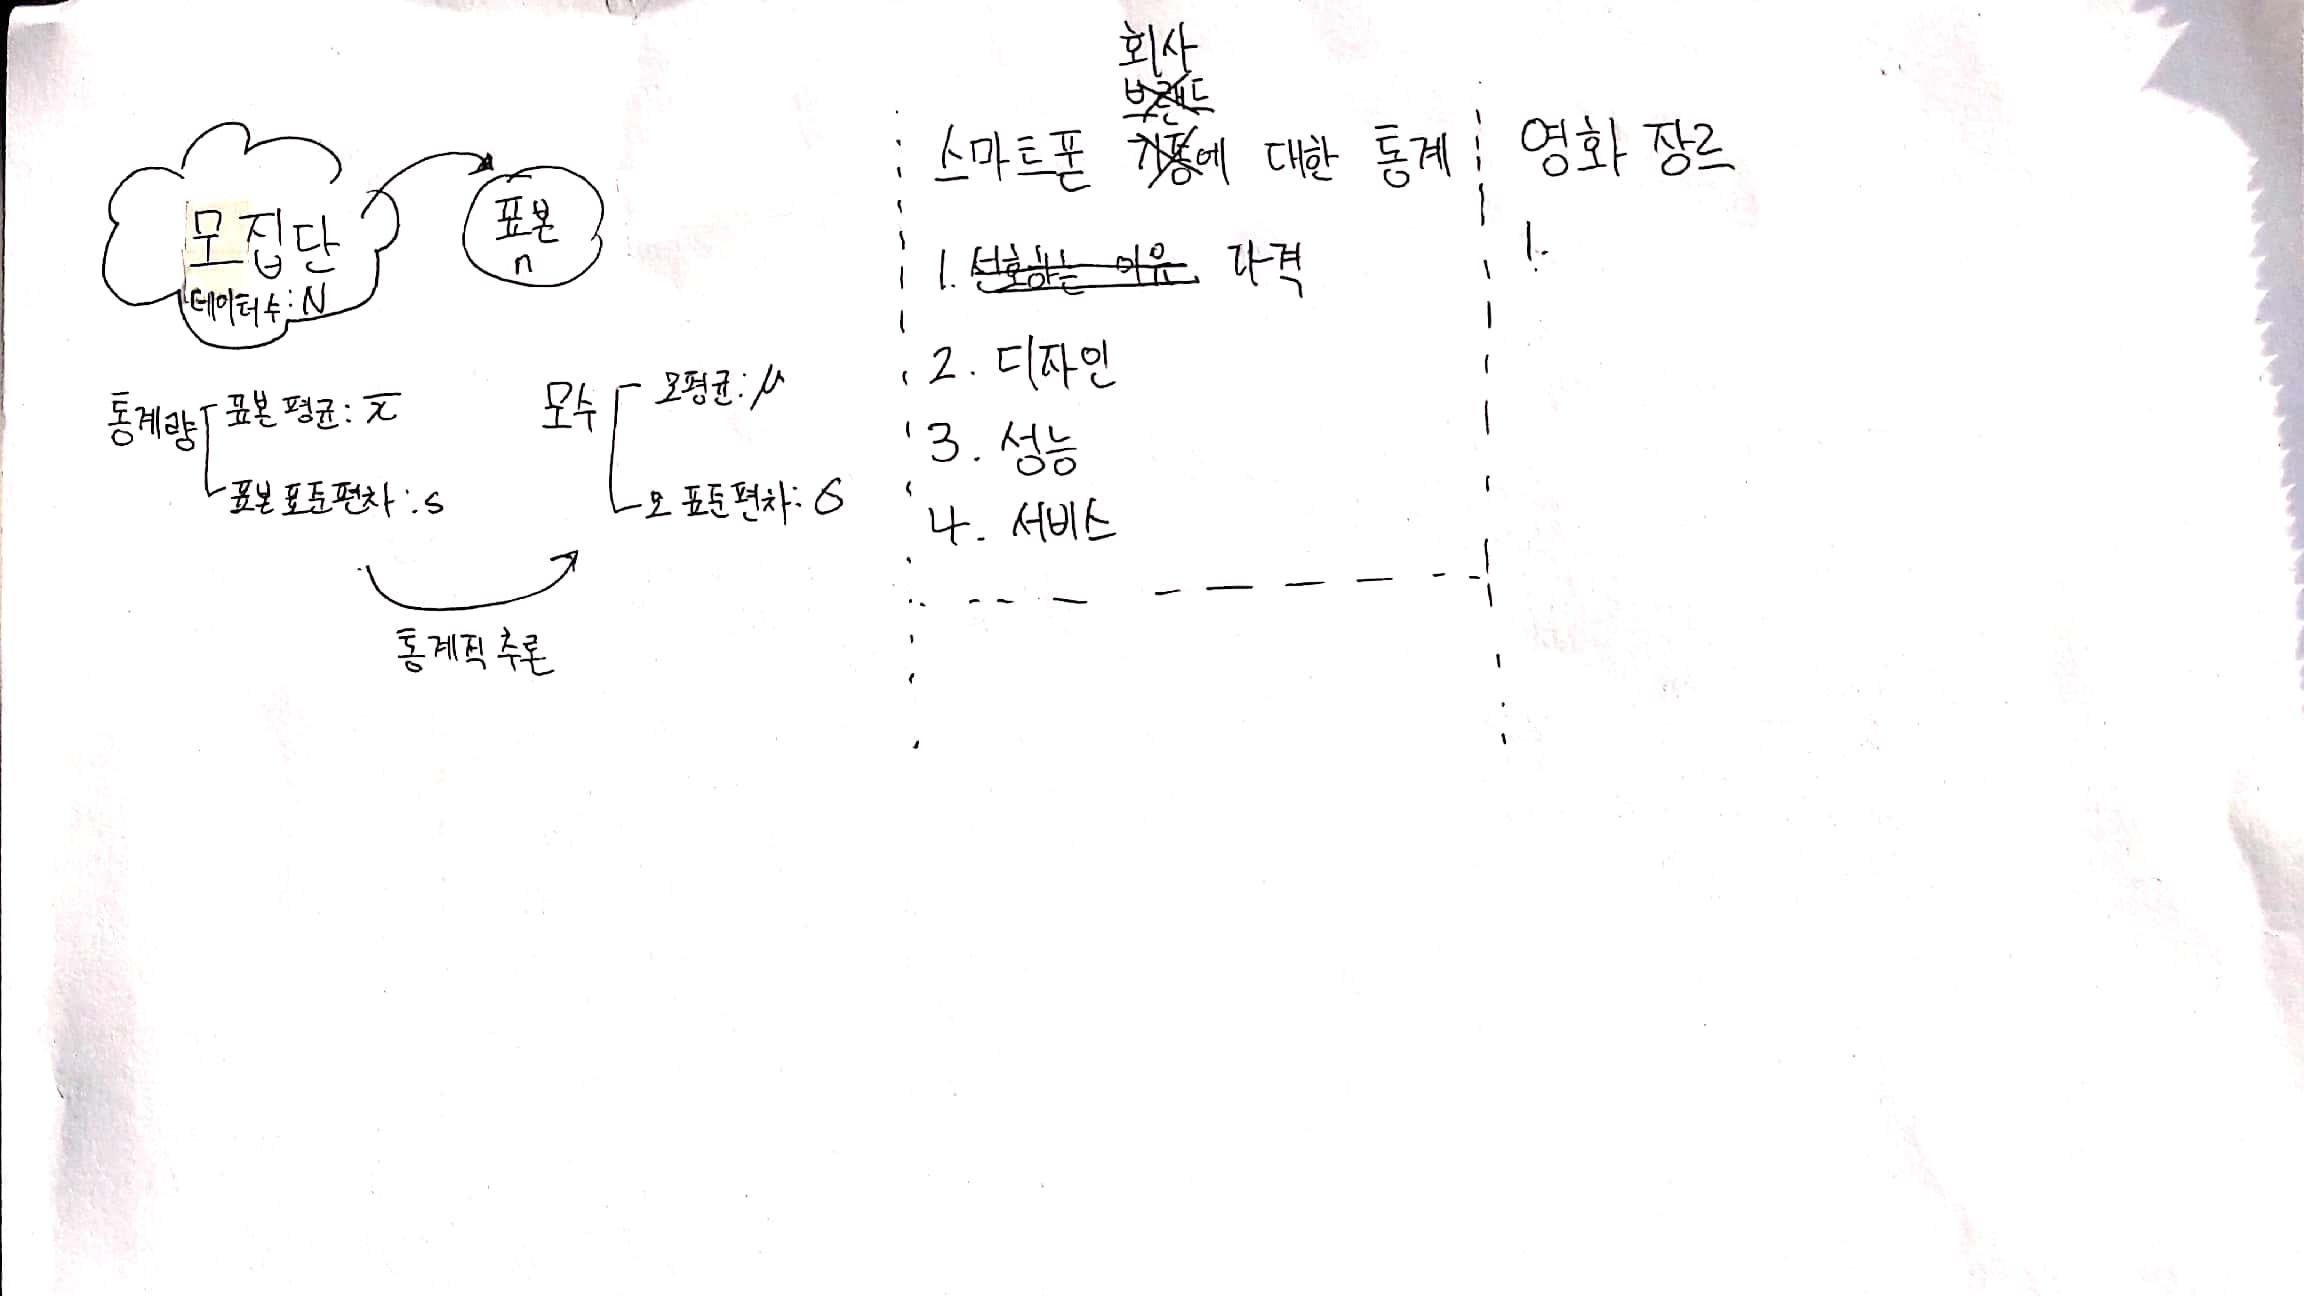 모집단
데이터수: N
표본
n
통계량
표본 평균: x̄
표본표준편차: s
모수
모평균: μ
모 표준편차: σ
통계적 추론
회사
브랜드
스마트폰 기종에 대한 통계
1. 선호하는 이유 가격
2. 디자인
3. 성능
4. 서비스
영화 장르
1.